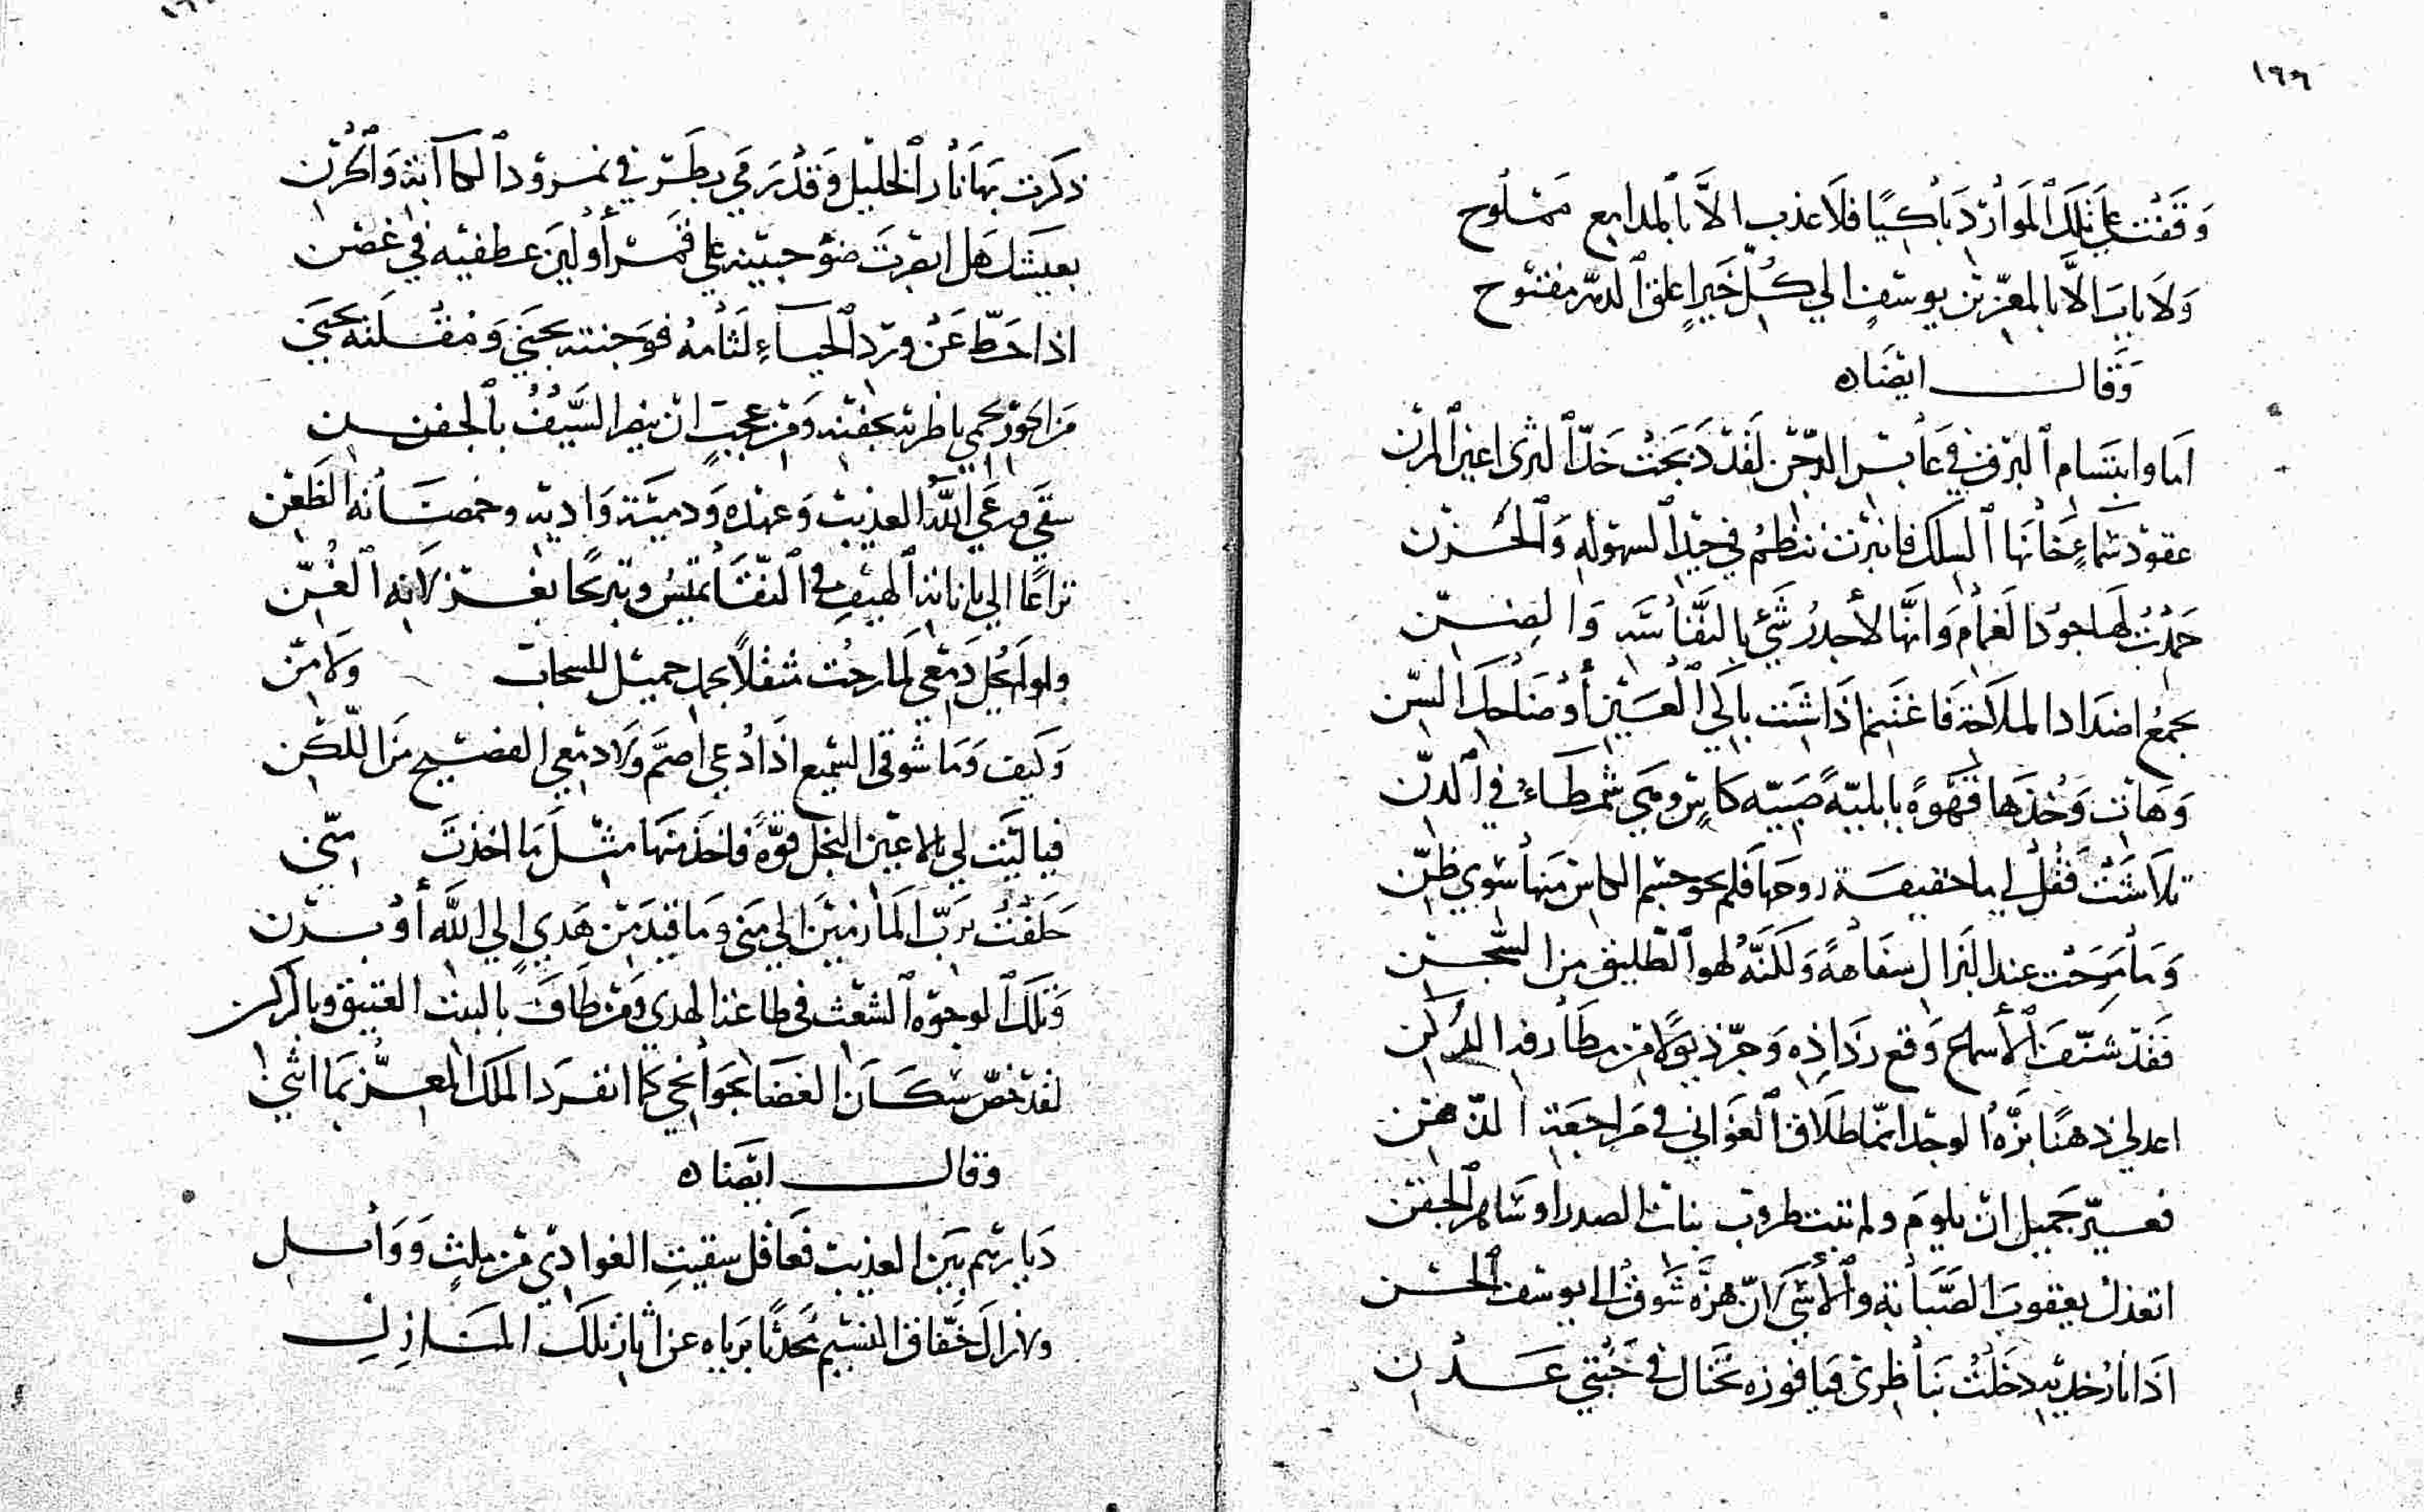 ١٦٦
وَقَفْتُ عَلى تلكَ الموَارد بَاكيًا فلَا عذب الاَّ بالمدامع ممْلُوح
وَلَا بابَ الاَّ بالمعزّ بن يوسفٍ الي كلّ خَيرٍ اغلق الدهر مفتوح
وَقال ايضًا ه
اما وابتسام البرق في عَابس الدّجن لقد دَبجت خدّ الثرى اعين المزن
عقود سَماءٍ خانها السلك فانبرت تنظم في جيد السهولة وَالحزن
حَمدْتُ لها جودَ الغمام وَانها لأجدرُ شَيْ بالنفَاسَة وَالضنّ
بجمع اضدَاد الملَاحة فَاغتنم اذا شئت باكي العَين أو ضَاحك السّن
وَهات وَخُذها قهْوةً بابليّةً صَبيّه كاسٍ وهي شمطاءُ في الدنّ
تلَاشَتْ فَقُلْ لي يا حقيقة روحها فلم يحو جسْم الكاس منها سوي ظنّ
وَما مَرِحَت عند البزال سفَاهةً وَلكنّهُ لهو الطليق من السّجن
فَقدْ شنّفَ الأسماع وَقع رذاذه وَجرّ ذيولًا من مطارف الدكن
اعد لي ذهنًا بزّهُ الوجد انمّا طلَاق الغَوَاني في مَراجعَة الذهن
فعسيّر جَميل ان يلومَ ولم تبت طروب بنات الصدر او سَاهر الجفن
اتعذل يعقوبَ الصَّبَابة والأسَى لان هزّه شَوقٌ الي يوسف الحسْن
اذَا نار خديه دخلْتُ بنَاظرى فيا فوزه تختال في جَنتي عَدْن
ذكرت بهَا نار الخليل وَقدْ رَمي بطَرْفي نمرود الكآبة وَالحزن
بعيشك هَل ابصرتَ ضوْ جبينه علي قَمر أو لينَ عطفيه في غصْن
اذا حَطّ عَنْ ورْد الحيَاءِ لثامهُ فوَجنته يجني وَمُقلته تجني
مَن الحور يحمي ناظريه بجفنه وَمن عجبٍ ان ينصر السَّيفُ بالجفن
سقَي ورعَي اللهُ العذيب وَعهْده وَدميَة وَاديه وخمصَانه الظعْن
نزاعًا الي باناته الهيف في النّقَا تميسُ وتبريحًا بغزلانه الغُنّ
ولو لم يحل دَمْعي لما رحُت مثقلًا بحمل جميل للسحاب وَلا مَنّ
وَكيف وَما شوقي السّميع اذَا دُعي اصمّ وَلا دمْعي الفصيح منَ اللّكن
فيا ليت لي بالاعين النجل قوّةً فاخذ منهَا مثل مَا اخذت منّي
حَلَفْتُ برَبّ المأزمَيْن الي منىً وَما قيد من هَديٍ الي الله أو بدْن
وَتلكَ الوجوه الشعْث في طاعة الهدي وَمن طاف بالبيت العتيق وبالركن
لقدْ خصّ سُكّان الغضَا بجوَانحي كما انفرَد الملك المعزّ بمَا اثني
وقال ايضًا ه
دَيارهُم بَين العذيب فعَاقل سقيتِ الغوادي من ملثٍ وَوَابل
ولا زالَ خَفّاق النسيْم محَدّثًا برَياه عن اثار تلكَ المنَازِلِ